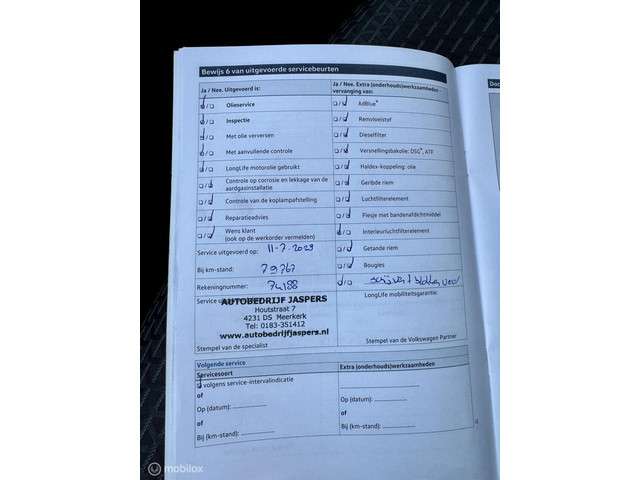 Bewijs 6 van uitgevoerde servicebeurten
Doc
Ja / Nee. Uitgevoerd is:
Ja / Nee. Extra (onderhouds)werkzaamheden - vervanging van:
Olieservice
AdBlue®
Inspectie
Remvloeistof
Met olie verversen
Dieselfilter
Met aanvullende controle
Versnellingsbakolie: DSG®, ATF
LongLife motorolie gebruikt
Haldex-koppeling: olie
Controle op corrosie en lekkage van de
aardgasinstallatie
Geribde riem
Controle van de koplampafstelling
Luchtfilterelement
Reparatieadvies
Flesje met bandenafdichtmiddel
Wens klant
(ook op de werkorder vermelden)
Interieurluchtfilterelement
Service uitgevoerd op:
Getande riem
Bij km-stand: 79767
Bougies
Rekeningnummer: 74188
Service
LongLife mobiliteitsgarantie:
AUTOBEDRIJF JASPERS
Houtstraat 7
4231 DS Meerkerk
Tel: 0183-351412
www.autobedrijfjaspers.nl
Stempel van de specialist
Stempel van de Volkswagen Partner
Volgende service
Servicesoort
Extra (onderhouds)werkzaamheden
volgens service-intervalindicatie
of
of
Op (datum):
Op (datum):
of
of
Bij (km-stand):
Bij (km-stand):
mobilox